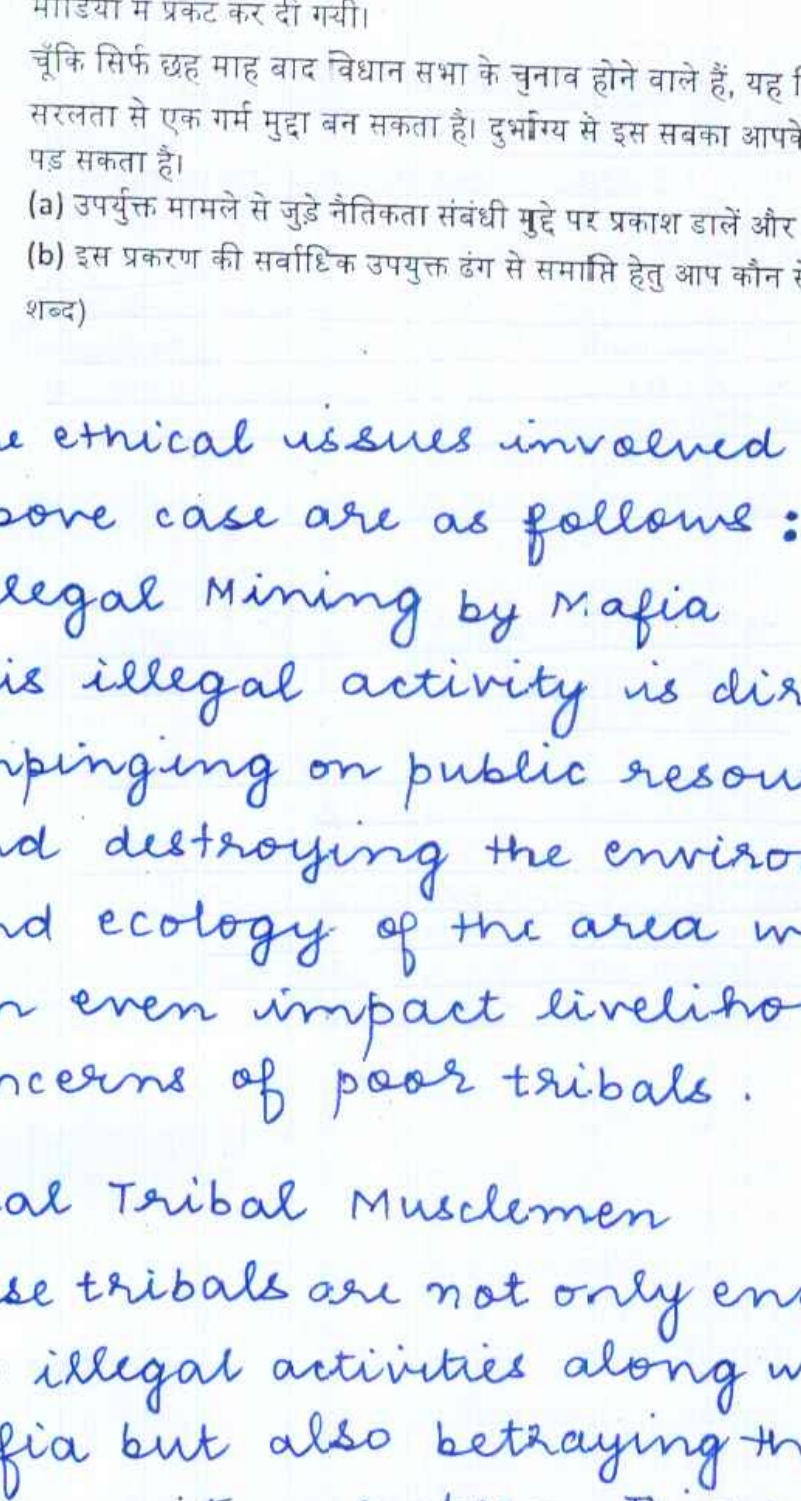 मीडिया में प्रकट कर दी गयी।
चूँकि सिर्फ छह माह बाद विधान सभा के चुनाव होने वाले हैं, यह
सरलता से एक गर्म मुद्दा बन सकता है। दुर्भाग्य से इस सबका आपके
पड़ सकता है।
(a) उपर्युक्त मामले से जुड़े नैतिकता संबंधी मुद्दे पर प्रकाश डालें और
(b) इस प्रकरण की सर्वाधिक उपयुक्त ढंग से समाप्ति हेतु आप कौन से
शब्द)
e ethical issues involved
bove case are as follows :
llegal Mining by Mafia
is illegal activity is dir
mpinging on public resou
nd destroying the enviro
nd ecology of the area w
n even impact liveliho
ncerns of poor tribals .
al Tribal Musclemen
se tribals are not only en
illegal activities along w
fia but also betraying th